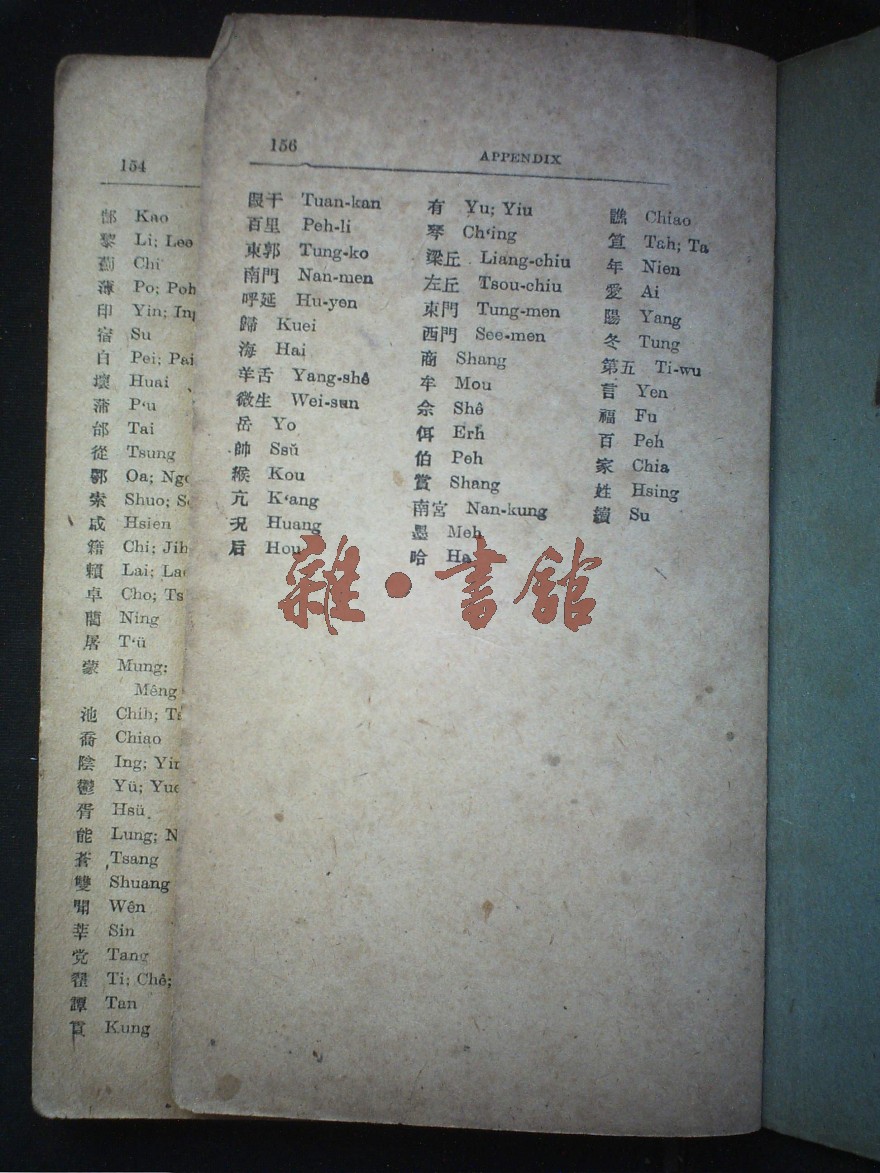 154
郜 Kao
黎 Li; Lee
薊 Chi
薄 Po; Poh
印 Yin; In
宿 Su
白 Pei; Pai
壞 Huai
蒲 P‘u
邰 Tai
從 Tsung
鄂 Oa; Ngo
索 Shuo; S
咸 Hsien
籍 Chi; Jih
賴 Lai; La
卓 Cho; Ts
藺 Ning
屠 T‘ü
蒙 Mung;
Mêng
池 Chih; T
喬 Chiao
陰 Ing; Yin
鬱 Yü; Yue
胥 Hsü
能 Lung; N
蒼 Tsang
雙 Shuang
聞 Wên
莘 Sin
党 Tang
翟 Ti; Chê;
譚 Tan
貢 Kung
156
APPENDIX
段干 Tuan-kan
百里 Peh-li
東郭 Tung-ko
南門 Nan-men
呼延 Hu-yen
歸 Kuei
海 Hai
羊舌 Yang-shê
微生 Wei-sun
岳 Yo
帥 Ssŭ
緱 Kou
亢 K‘ang
况 Huang
后 Hou
有 Yu; Yiu
琴 Ch‘ing
梁丘 Liang-chiu
左丘 Tsou-chiu
東門 Tung-men
西門 See-men
商 Shang
牟 Mou
佘 Shê
佴 Erh
伯 Peh
賞 Shang
南宮 Nan-kung
墨 Meh
哈 Ha
譙 Chiao
笪 Tah; Ta
年 Nien
愛 Ai
陽 Yang
冬 Tung
第五 Ti-wu
言 Yen
福 Fu
百 Peh
家 Chia
姓 Hsing
續 Su
雜·書館